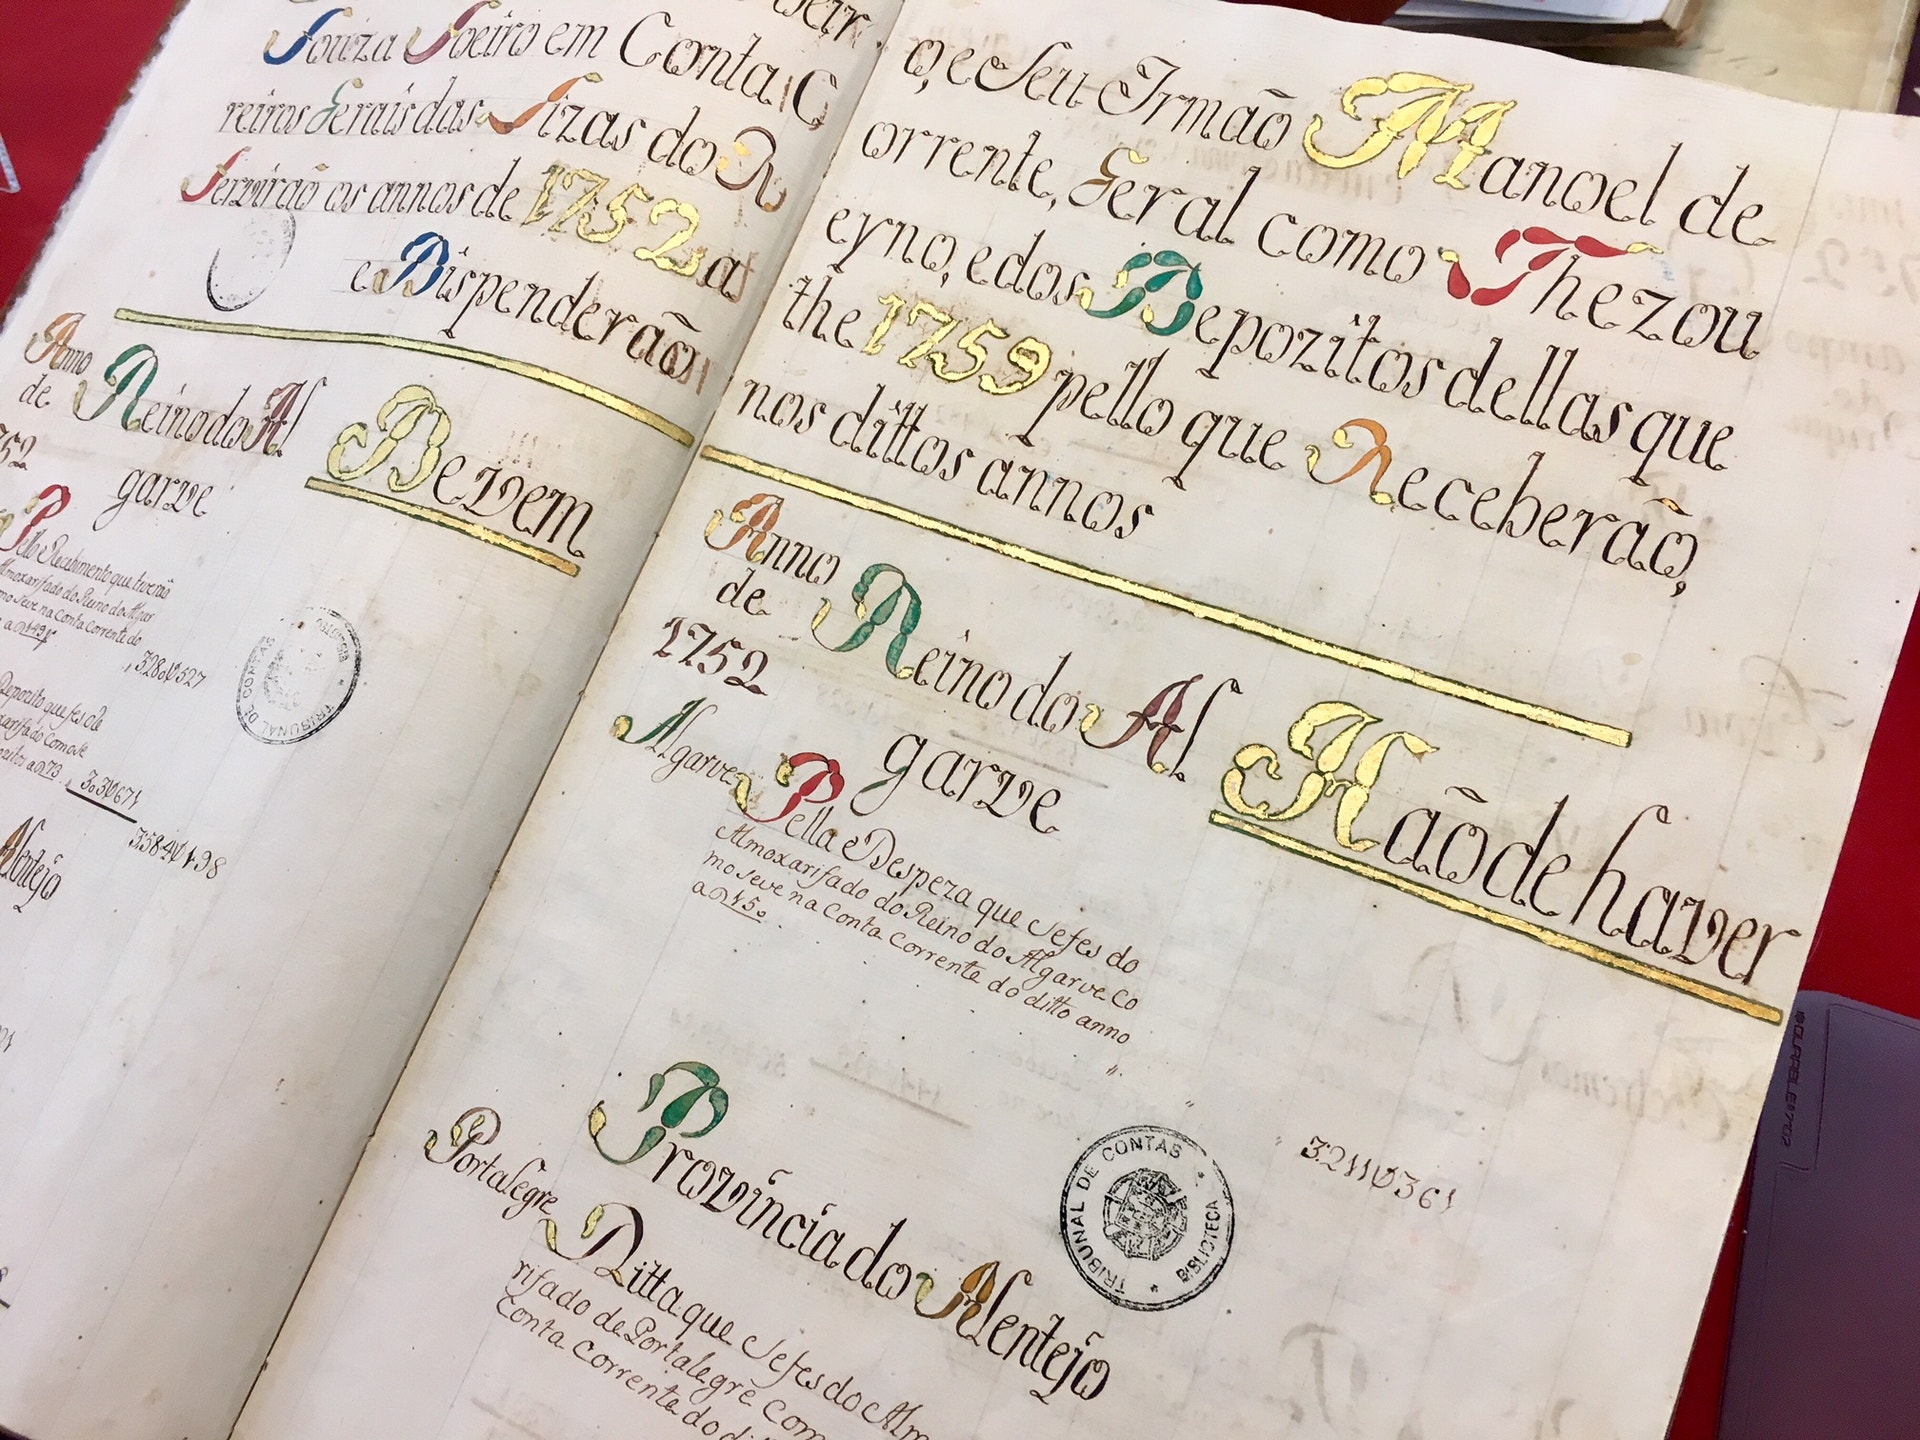 Souza Soeiro em Conta C
reiros Gerais das Sizas do R
Servirão os annos de 1752 at
e Dispenderão
Anno
de
752
Reino do Al
garve
Devem
Pello Recebimento que tiverão
Almoxarifado do Reino do Algar
mo seve na Conta Corrente do
a 149
328.527
Depozito que se fes do
3.3671
3:584198
Alentejo
TRIBUNAL DE CONTAS
BIBLIOTECA
o, e Seu Irmaõ Manoel de
orrente, Geral como Thezou
eyno, e dos Depozitos dellas que
the 1759 pello que Receberaõ,
nos dittos annos
Anno
de
1752
Reino do Al
garve
Haõ de haver
Algarve
Pella Despeza que se fes do
Almoxarifado do Reino do Algarve Co
mo seve na Conta Corrente do ditto anno
a 150
3:211361
Provincia do Alentejo
Portalegre
Ditta que se fes do Alm
rifado de Portalegre Com
Conta Corrente do d
TRIBUNAL DE CONTAS
BIBLIOTECA